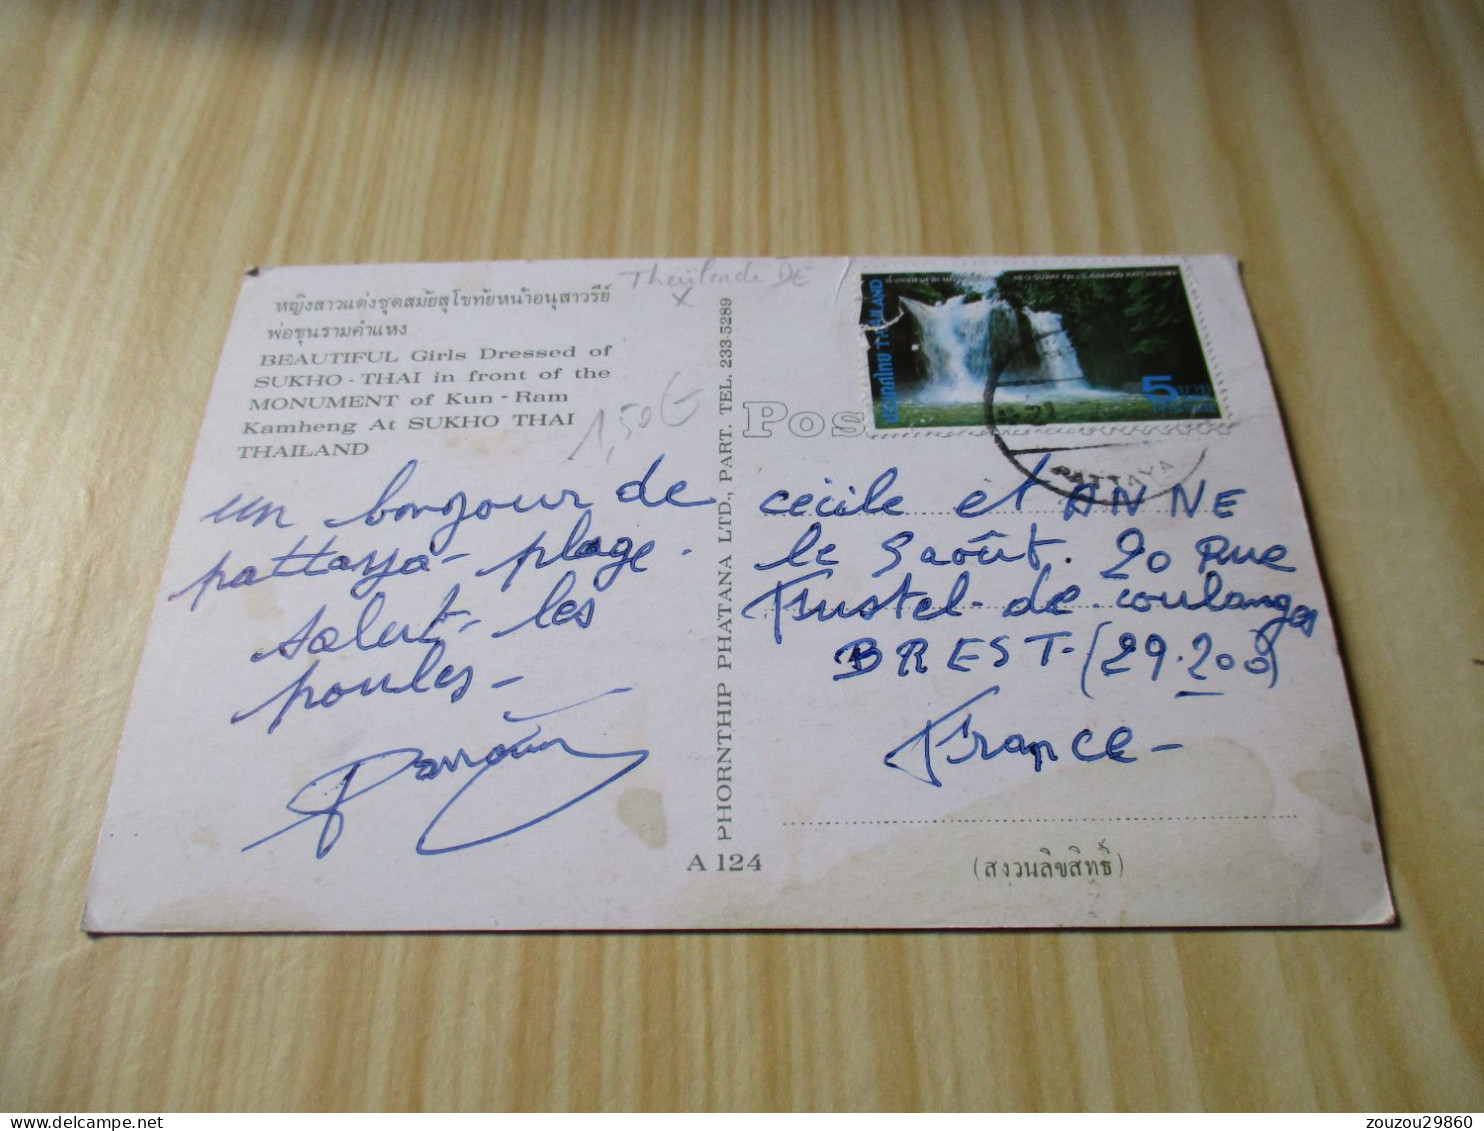 Thailande DE
X
หญิงสาวแต่งชุดสมัยสุโขทัยหน้าอนุสาวรีย์
พ่อขุนรามคำแหง
BEAUTIFUL Girls Dressed of
SUKHO - THAI in front of the
MONUMENT of Kun - Ram
Kamheng At SUKHO THAI
THAILAND
1,50€
un bonjour de
pattaya - plage.
salut - les
poules -
PHORNTHIP PHATANA LTD., PART. TEL. 233-5289
A 124
Pos
ประเทศไทย THAILAND
5 บาท
PATTAYA
cecile et ANNE
le Saoût. 20 Rue
Fustel - de coulanges
BREST - (29.200)
France -
(สงวนลิขสิทธิ์)
zouzou29860